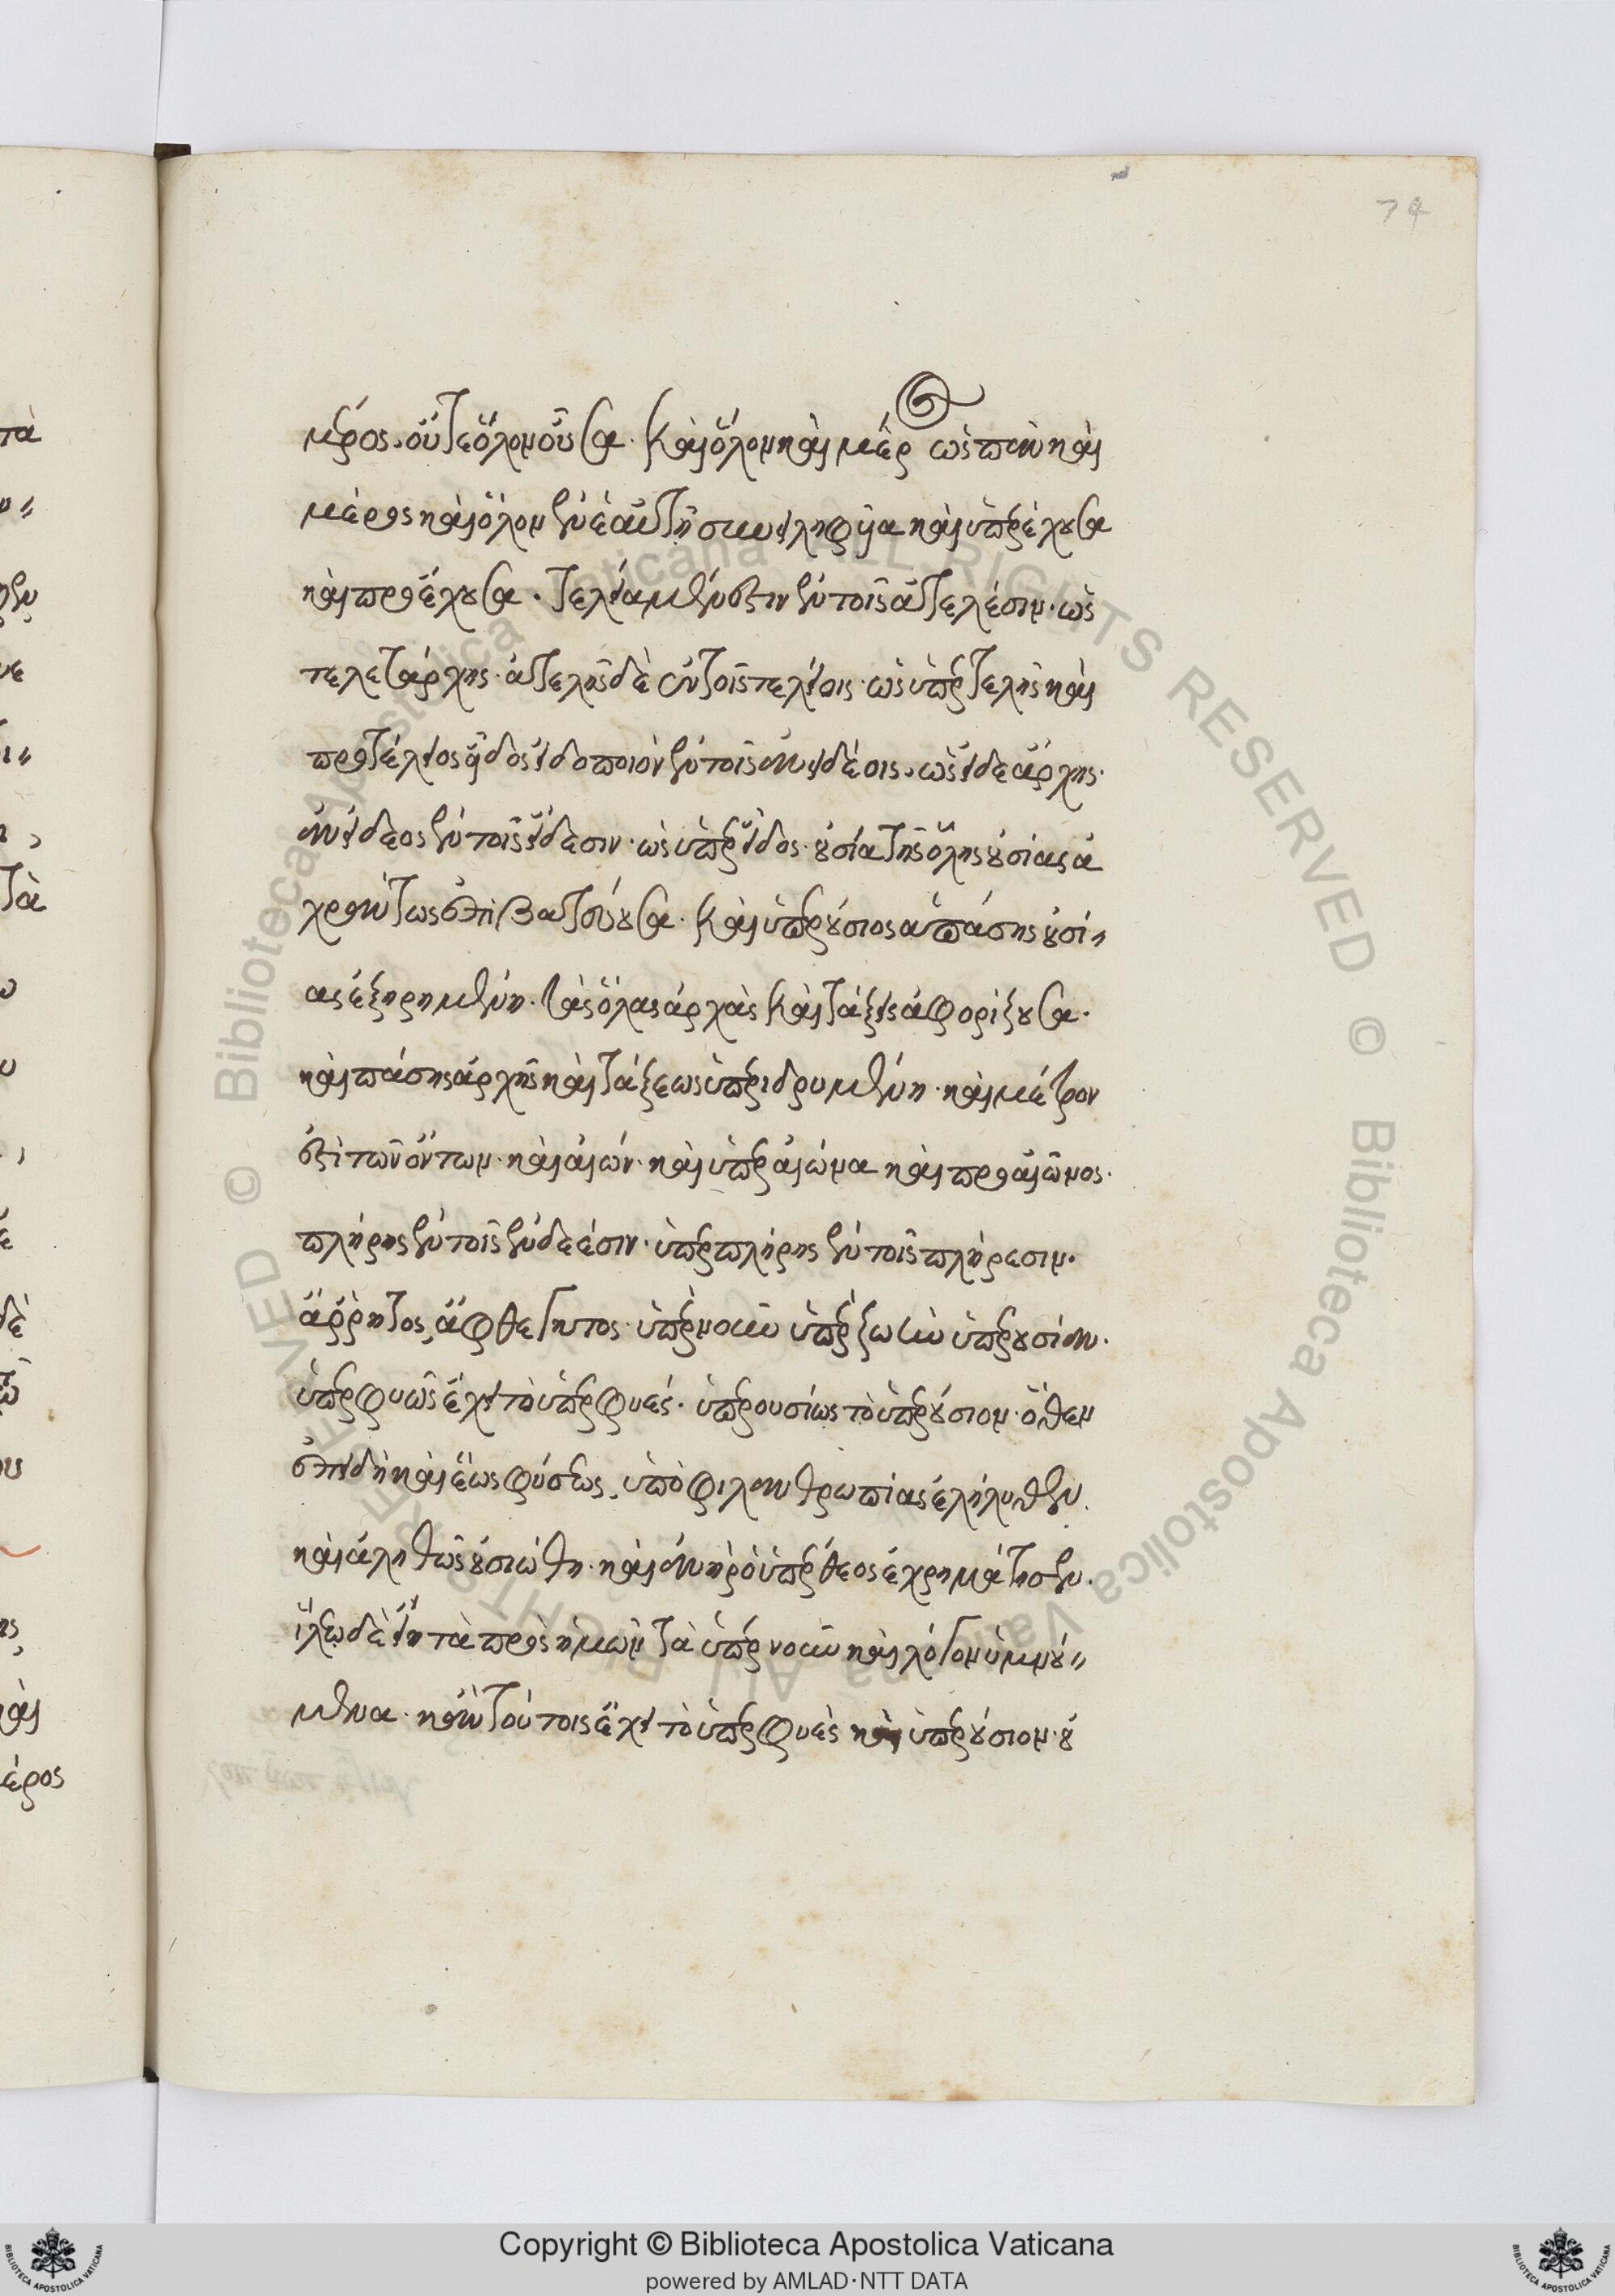 74
μέρος. οὔτε ὅλον οὖσα. καὶ ὅλον καὶ μέρος ὡς πᾶν καὶ
μέρος καὶ ὅλον ἐν ἑαυτῇ συνειληφυῖα καὶ ὑπερέχουσα
καὶ προέχουσα. τελεία μέν ἐστιν ἐν τοῖς ἀτελέσιν. ὡς
τελετάρχης. ἀτελὴς δὲ ἐν τοῖς τελείοις. ὡς ὑπερτελὴς καὶ
προτέλειος εἶδος εἰδοποιὸν ἐν τοῖς ἀνειδέοις. ὡς εἰδεάρχης.
ἀνείδεος ἐν τοῖς εἴδεσιν. ὡς ὑπὲρ εἶδος. οὐσία τῆς ὅλης οὐσίας ἀ
χράντως ἐπιβατεύουσα. καὶ ὑπερούσιος ἁπάσης οὐσί"
ας ἐξῃρημένη. τὰς ὅλας ἀρχὰς καὶ τάξεις ἀφορίζουσα.
καὶ πάσης ἀρχῆς καὶ τάξεως ὑπεριδρυμένη. καὶ μέτρον
ἐστὶ τῶν ὄντων. καὶ αἰών. καὶ ὑπὲρ αἰῶνα καὶ πρὸ αἰῶνος.
πλήρης ἐν τοῖς ἐνδεέσιν. ὑπερπλήρης ἐν τοῖς πλήρεσιν.
ἄρρητος, ἄφθεγκτος. ὑπὲρ νοῦν ὑπὲρ ζωὴν ὑπὲρ οὐσίαν.
ὑπερφυῶς ἔχει τὸ ὑπερφυές. ὑπερουσίως τὸ ὑπερούσιον. ὅθεν
ἐπειδὴ καὶ ἕως φύσεως, ὑπὸ φιλανθρωπίας ἐλήλυθεν.
καὶ ἀληθῶς οὐσιώθη. καὶ ἀνὴρ ὁ ὑπέρθεος ἐχρημάτισεν.
ἵλεω δὲ εἴη τὰ πρὸς ἡμῶν τὰ ὑπὲρ νοῦν καὶ λόγον ὑμνού"
μενα. κἀν τούτοις ἔχει τὸ ὑπερφυὲς καὶ ὑπερούσιον. οὐ
Copyright © Biblioteca Apostolica Vaticana
powered by AMLAD·NTT DATA